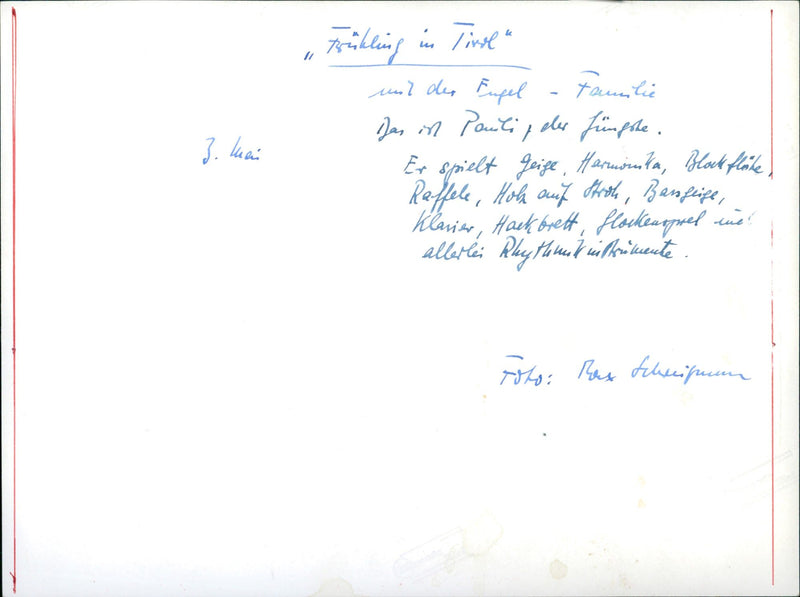 „Frühling in Tirol"
mit der Engel - Familie
Das ist Pauli, der Jüngste.
3. Mai
Er spielt Geige, Harmonika, Blockflöte,
Raffele, Holz auf Stroh, Bassgeige,
Klavier, Hackbrett, Glockenspiel und
allerlei Rhythmikinstrumente.
Foto: Max